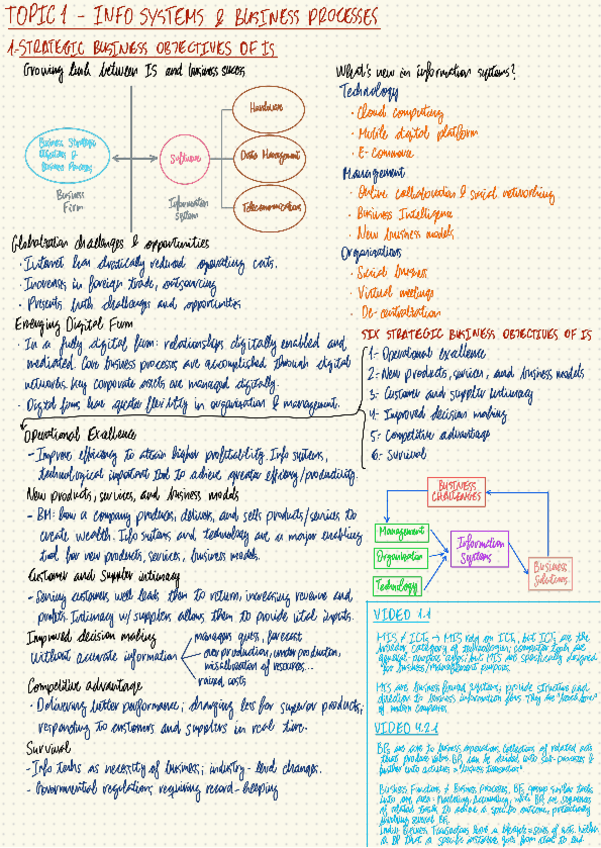 TOPIC 1 - INFO SYSTEMS & BUSINESS PROCESSES
1.-STRATEGIC BUSINESS OBJECTIVES OF IS
Growing link between IS and business success
Hardware
Business Strategic
Objectives &
Business Processes
Software
Data Management
Business
Firm
Information
System
Telecommunications
Globalization challenges & opportunities
· Internet has drastically reduced operating costs.
· Increases in foreign trade, outsourcing
· Presents both challenges and opportunities
Emerging Digital Firm
· In a fully digital firm: relationships digitally enabled and
mediated. Core business processes are accomplished through digital
networks. Key corporate assets are managed digitally.
· Digital firms have greater flexibility in organisation & management.
Operational Excellence
- Improve efficiency to attain higher profitability. Info systems,
technological important tool to achieve greater efficiency/productivity.
New products, services, and business models
- BM: how a company produces, delivers, and sells products/services to
create wealth. Info systems and technology are a major enabling
tool for new products, services, business models.
Customer and Supplier intimacy
- Serving customers well leads them to return, increasing revenue and
profits. Intimacy w/ suppliers allows them to provide vital inputs.
Improved decision making
Without accurate information
managers guess, forecast
overproduction, underproduction,
misallocation of resources...
raised costs
Competitive advantage
· Delivering better performance; charging less for superior products;
responding to customers and suppliers in real time.
Survival
- Info techs as necessity of business; industry-level changes.
- Governmental regulations requiring record-keeping
What's new in information systems?
Technology
· Cloud computing
· Mobile digital platform
· E-Commerce
Management
· Online collaboration & social networking
· Business Intelligence
· New business models
Organisations
· Social business
· Virtual meetings
· De-centralization
SIX STRATEGIC BUSINESS OBJECTIVES OF IS
1.- Operational excellence
2.- New products, services, and business models
3.- Customer and supplier intimacy
4.- Improved decision making
5.- Competitive advantage
6.- Survival
BUSINESS
CHALLENGES
Management
Organisation
Technology
Information
Systems
Business
Solutions
VIDEO 1.1
MIS ≠ ICTs → MIS rely on ICT, but ICTs are the
broader category of technologies; computer tools are
general purpose, but MIS are specifically designed
for business/management purposes
MIS are business focused systems; provide structure and
direction to business information flows. They are
of modern companies
VIDEO 4.2.1
BPs are core to business operations, collection of related acts
that produce value. BP can be divided into sub-processes &
further into activities
Business Functions ≠ Business Processes. BF group similar tasks
into one area: marketing, accounting, while BP are sequences
of related tasks to achieve a specific outcome, potentially
involving several BF.
a BP that a specific instance goes from start to end.